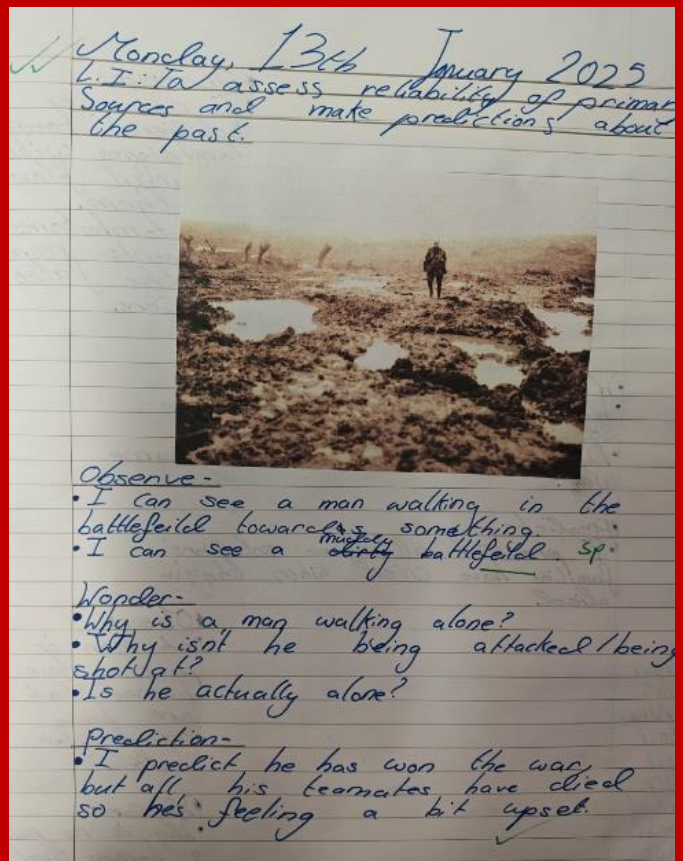 Monday, 13th January 2025
L.I: To assess reliability of primar
Sources and make predictions about
the past.
Observe-
• I can see a man walking in the
battlefeild towards something.
• I can see a muddy battlefeild sp
Wonder-
• Why is a man walking alone?
• Why isn't he being attacked/being
shot at?
• Is he actually alone?
Prediction-
• I predict he has won the war,
but all his teamates have died
so he's feeling a bit upset.